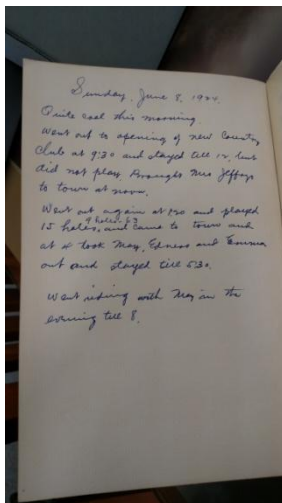 Sunday, June 8, 1924.
Quite cool this morning.
Went out to opening of new Country
Club at 9:30 and stayed till 12, but
did not play. Brought Mrs Jeffreys
to town at noon.
Went out again at 1:20 and played
9 holes, 53
15 holes, and came to town and
at 4 took May, and Emma
out and stayed till 5:30.
Went riding with May in the
evening till 8.